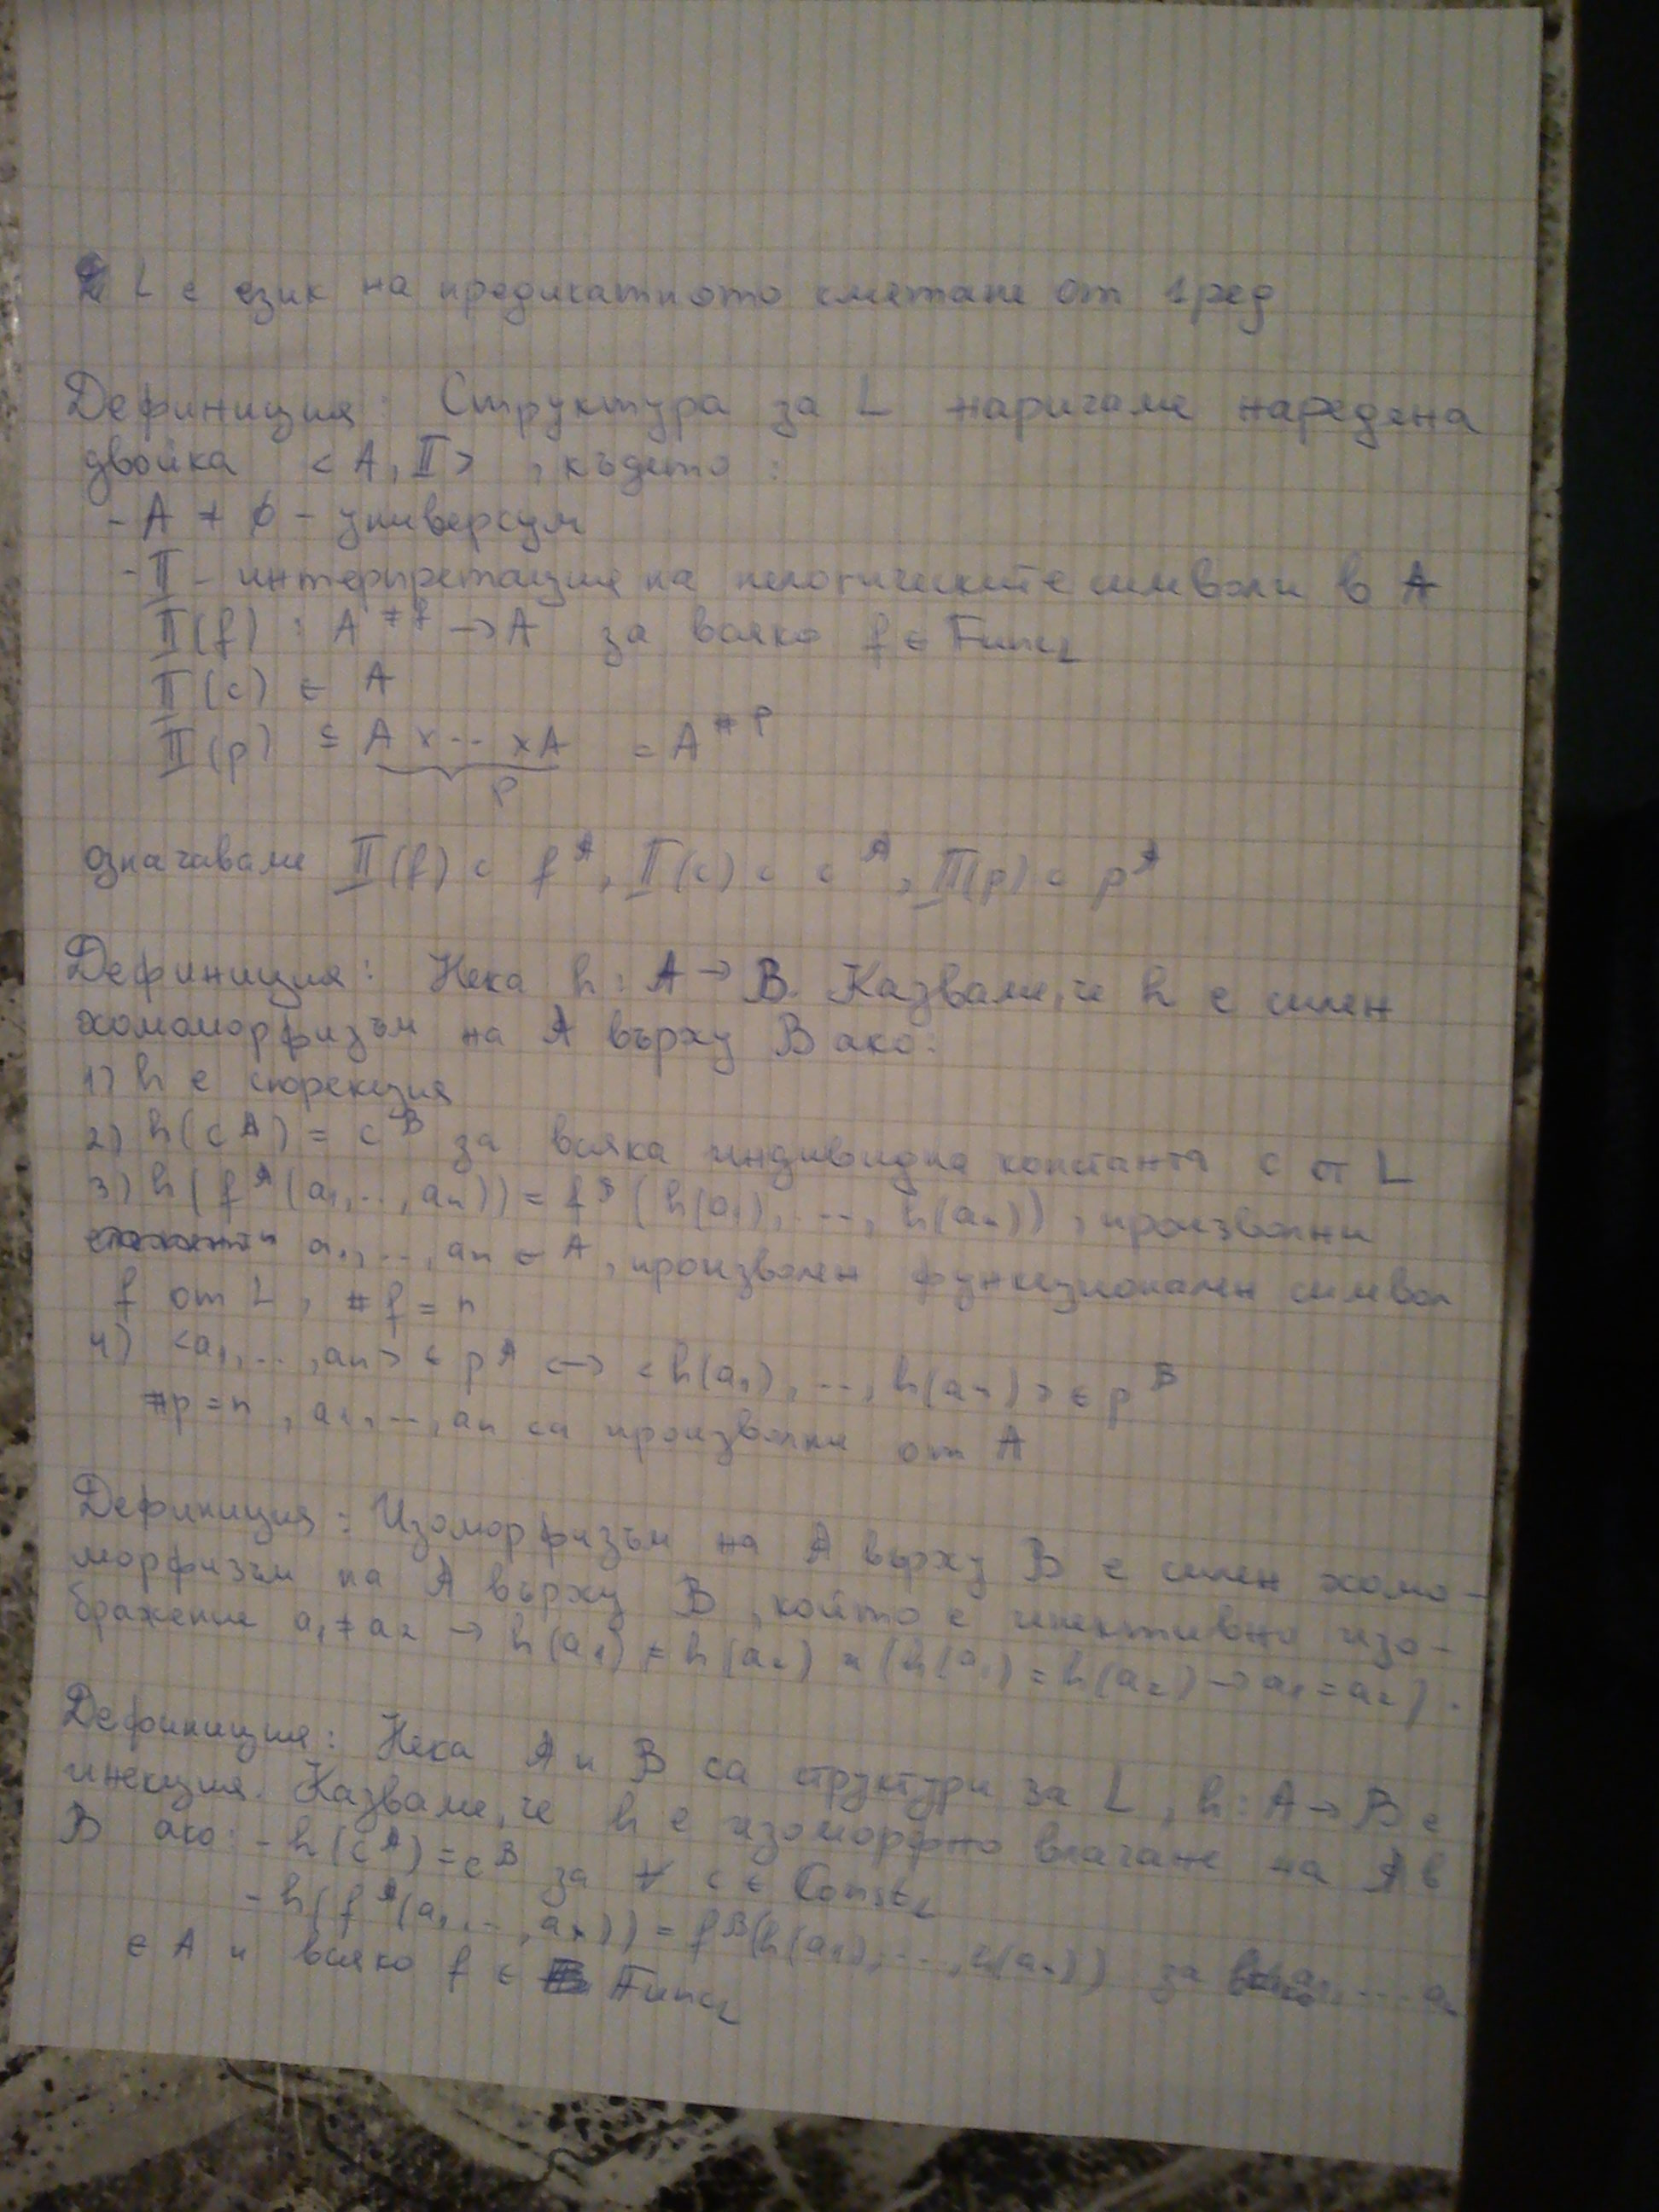 L е език на предикатното смятане от 1 ред
Дефиниция: Структура за L наричаме наредена
двойка <A, II>, където:
- A ≠ ∅ - универсум
- II - интерпретация на нелогическите символи в A
II(f) : A^#f → A за всяко f ∈ Func_L
II(c) ∈ A
II(p) ⊆ A x ... x A = A^#p
p
означаваме II(f) с f^A, II(c) с c^A, II(p) с p^A
Дефиниция: Нека h : A → B. Казваме, че h е силен
хомоморфизъм на A върху B ако:
1) h е сюрекция
2) h(c^A) = c^B за всяка индивидна константа c от L
3) h(f^A(a1,..,an)) = f^B(h(a1),..., h(an)), произволни
елементи a1,..,an ∈ A, произволен функционален символ
f от L, #f = n
4) <a1,..,an> ∈ p^A <-> <h(a1),..,h(an)> ∈ p^B
#p = n, a1,..,an са произволни от A
Дефиниция: Изоморфизъм на A върху B е силен хомо-
морфизъм на A върху B, който е инективно изо-
бражение a1 ≠ a2 → h(a1) ≠ h(a2) и (h(a1) = h(a2) → a1 = a2).
Дефиниция: Нека A и B са структури за L, h : A → B е
инекция. Казваме, че h е изоморфно влагане на A в
B ако: - h(c^A) = c^B за ∀ c ∈ Const_L
- h(f^A(a1,..,an)) = f^B(h(a1),...,h(an)) за a1,... an
∈ A и всяко f ∈ Func_L